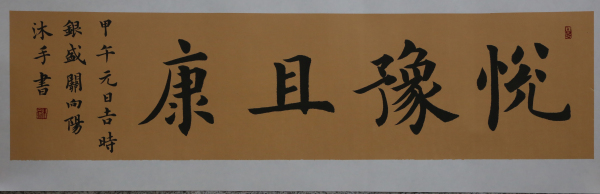 悅豫且康
甲午元日吉時
銀盛閣向陽
沐手書